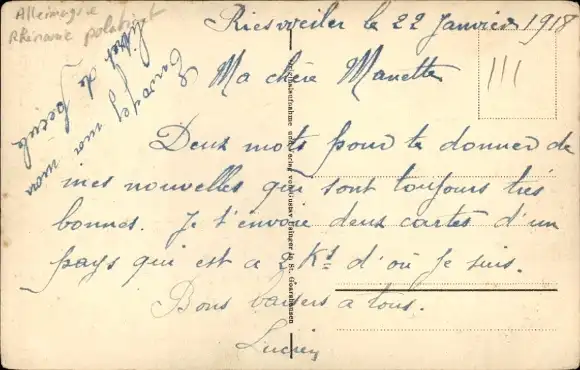 Allemagne
Rhénanie palatinat
Riesweiler le 22 Janvier 1918
III
Ma chère Manette
Deux mots pour te donner de
mes nouvelles qui sont toujours très
bonnes. Je t'envoie deux cartes d'un
pays qui est a 2 Ks d'où Je suis.
Bons baisers a tous.
Lucien
Envoyez moi mon
de
Originalaufnahme und Verlag von Gustav in St. Goarshausen